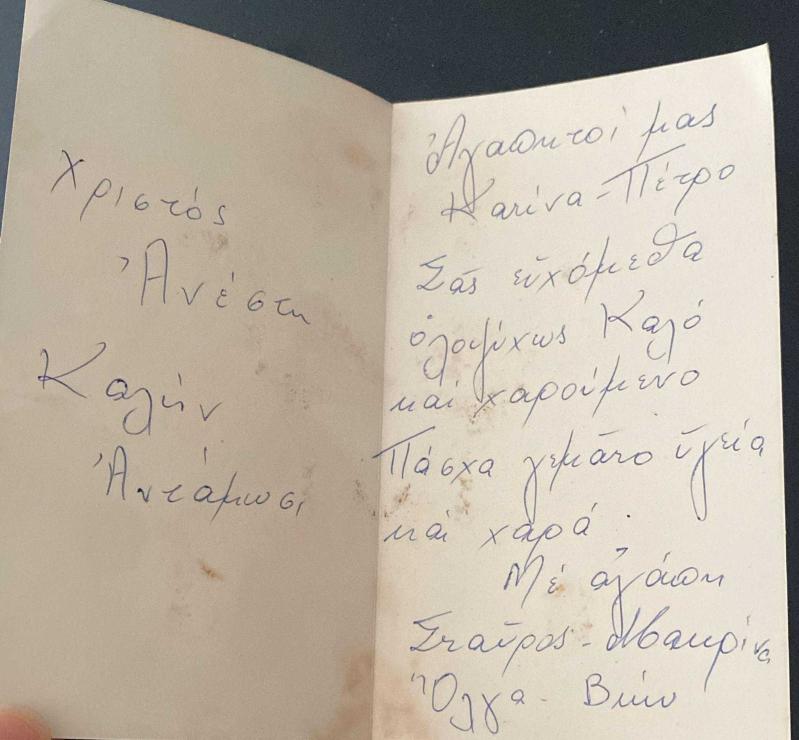 Χριστός
Ἀνέστη
Καλήν
Ἀντάμωσι
Ἀγαπητοί μας
Κατίνα - Πέτρο
Σᾶς εὐχόμεθα
ὁλοψύχως Καλό
καί χαρούμενο
Πάσχα γεμᾶτο ὑγεία
καί χαρά.
Μέ ἀγάπη
Σταῦρος - Μακρίνα
Ὄλγα - Βίκυ